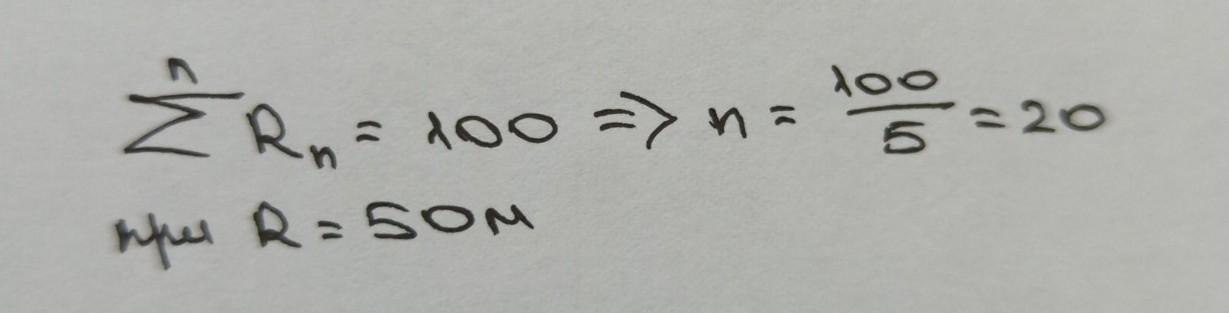 n
∑ Rₙ = 100 => n = 100/5 = 20
при R = 5Ом